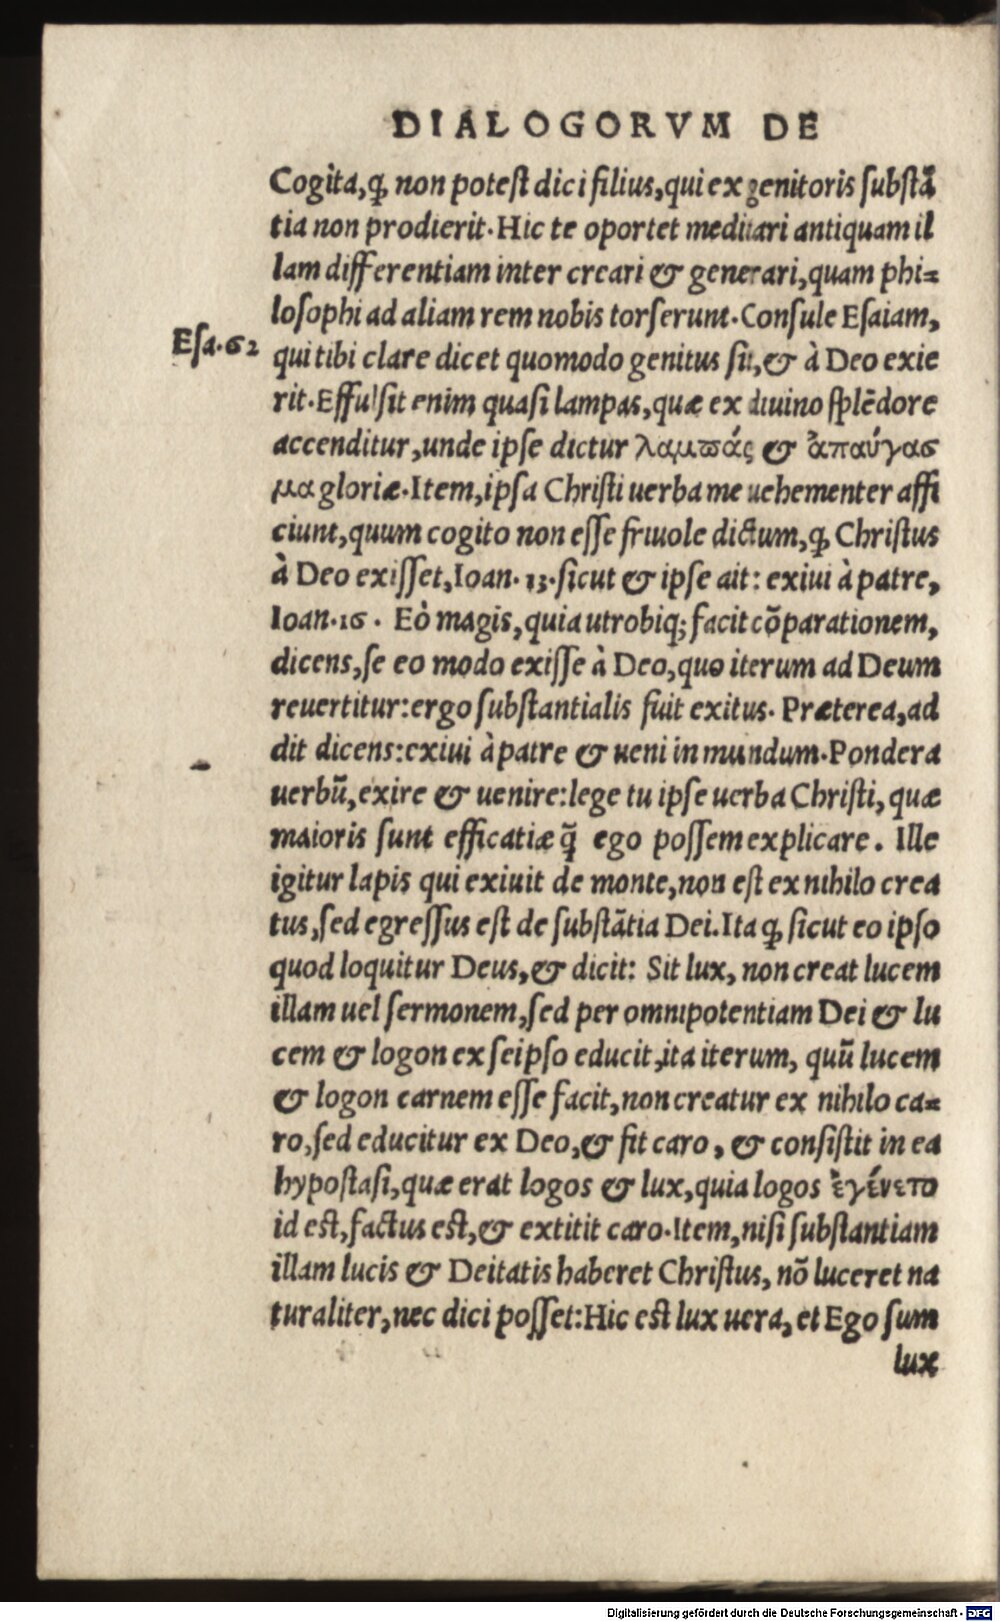 DIALOGORVM DE
Cogita, ꝙ non potest dici filius, qui ex genitoris substā
tia non prodierit. Hic te oportet meditari antiquam il
lam differentiam inter creari & generari, quam phi-
losophi ad aliam rem nobis torserunt. Consule Esaiam,
Esa. 62
qui tibi clare dicet quomodo genitus sit, & à Deo exie
rit. Effulsit enim quasi lampas, quæ ex diuino splēdore
accenditur, unde ipse dictur λαμϖάς & ἀπαύγασ
μα gloriæ. Item, ipsa Christi uerba me uehementer affi
ciunt, quum cogito non esse friuole dictum, ꝙ Christus
à Deo exisset, Ioan. 13. sicut & ipse ait: exiui à patre,
Ioan. 16. Eò magis, quia utrobiq; facit cōparationem,
dicens, se eo modo exisse à Deo, quo iterum ad Deum
reuertitur: ergo substantialis fuit exitus. Præterea, ad
dit dicens: exiui à patre & ueni in mundum. Pondera
uerbū, exire & uenire: lege tu ipse uerba Christi, quæ
maioris sunt efficatiæ q̄ ego possem explicare. Ille
igitur lapis qui exiuit de monte, non est ex nihilo crea
tus, sed egressus est de substātia Dei. Ita ꝙ sicut eo ipso
quod loquitur Deus, & dicit: Sit lux, non creat lucem
illam uel sermonem, sed per omnipotentiam Dei & lu
cem & logon ex seipso educit, ita iterum, quū lucem
& logon carnem esse facit, non creatur ex nihilo ca-
ro, sed educitur ex Deo, & fit caro, & consistit in ea
hypostasi, quæ erat logos & lux, quia logos ἐγένετο
id est, factus est, & extitit caro. Item, nisi substantiam
illam lucis & Deitatis haberet Christus, nō luceret na
turaliter, nec dici posset: Hic est lux uera, et Ego sum
lux
Digitalisierung gefördert durch die Deutsche Forschungsgemeinschaft - DFG